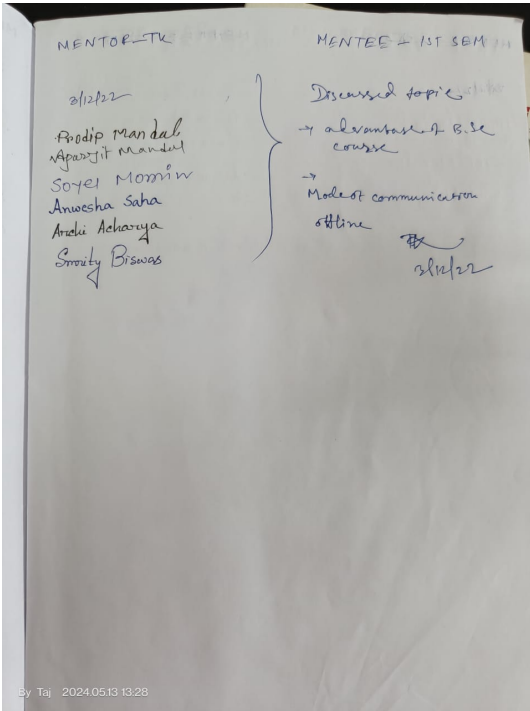 MENTOR-TK
MENTEE - 1ST SEM
3/12/22
Prodip Mandal
Aparjit Mandal
Soyel Momin
Anwesha Saha
Archi Acharya
Smrity Biswas
Discussed topic
→ advantage of B.Sc
course
→
Mode of communication
offline
TK
3/12/22
By Taj 2024.05.13 13:28